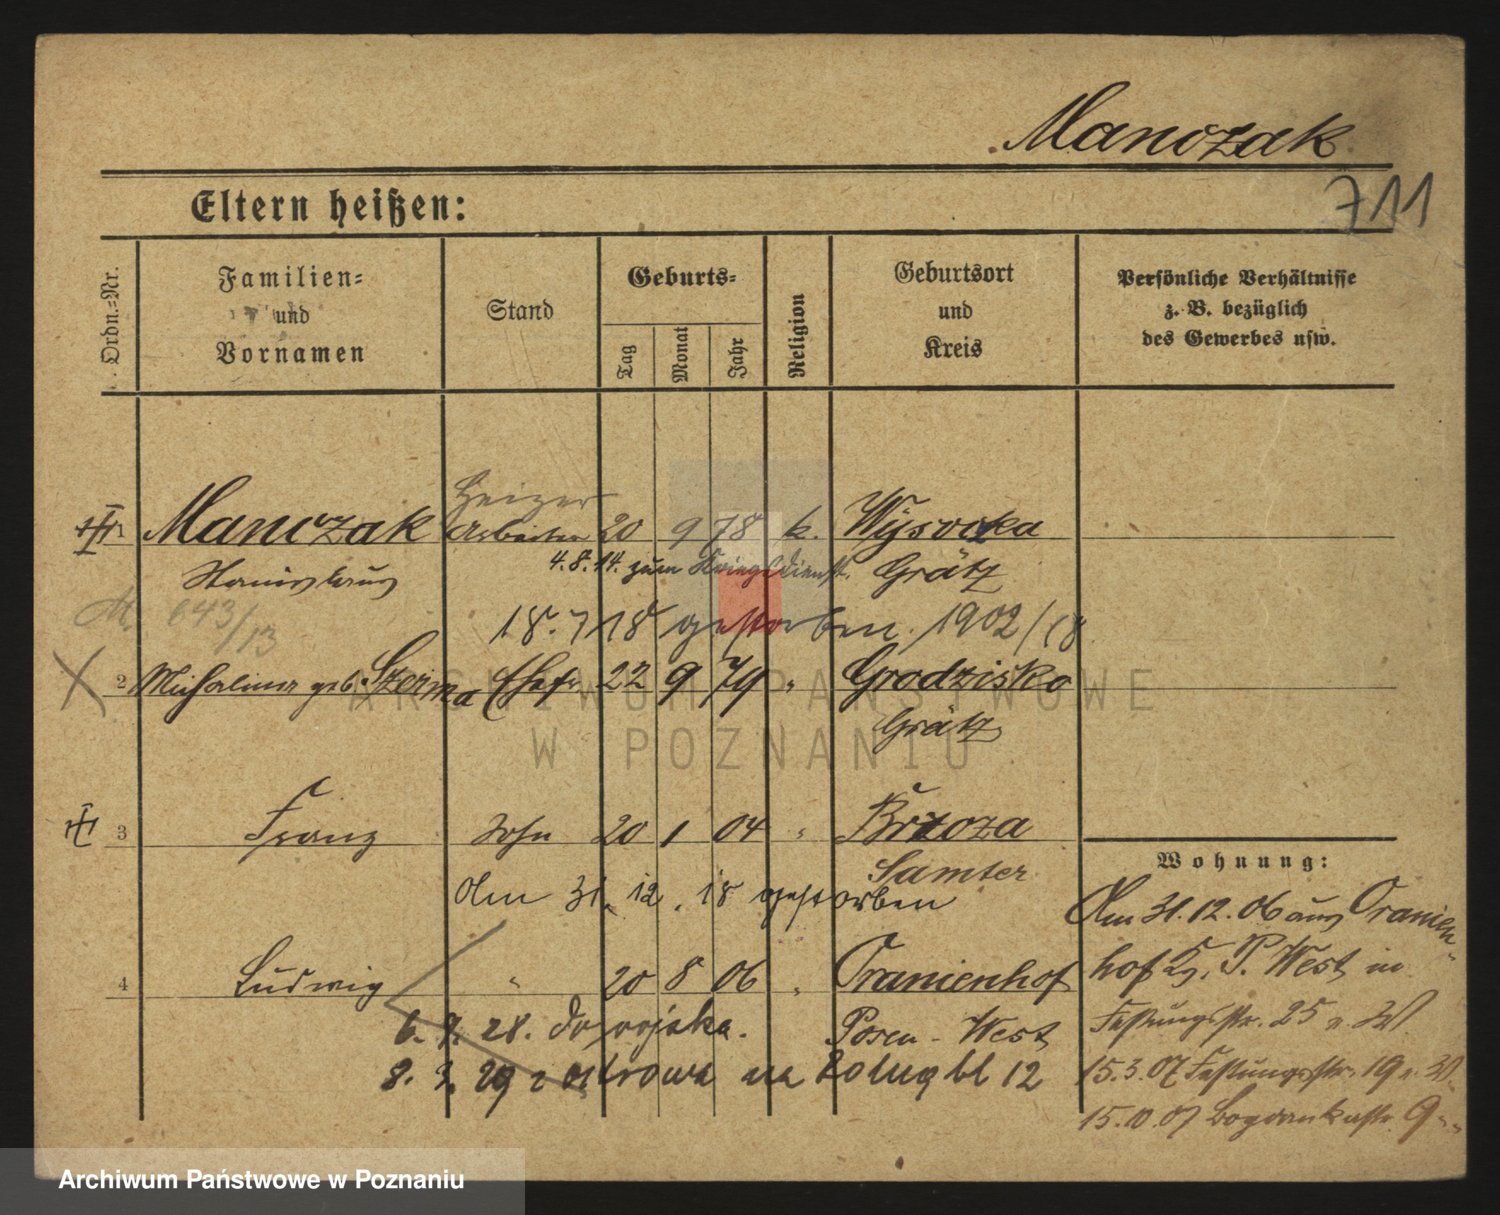 Manczak
711
Eltern heißen:
Ordn.=Nr.
Familien=
und
Vornamen
Stand
Geburts=
Tag
Monat
Jahr
Religion
Geburtsort
und
Kreis
Persönliche Verhältnisse
z. B. bezüglich
des Gewerbes usw.
Heizer
Manczak Arbeiter 20 9 78 k. Wysocka
Stanislaus 4.8.14. zum Kriegsdienst. Grätz
M. 643/13
18.7 18 gestorben. 1902/18
2 Michalina geb. Szejma Ehefr 22 9 79 " Grodzisko
Grätz
3 Franz Sohn 20 1 04 " Brzoza
Samter
Am 31. 12. 18 gestorben
Wohnung:
Am 31.12.06 aus Oranien
hof Kr. P. West in
Festungsstr. 25 v. W.
15.3.07 Festungsstr. 19 v. W.
15.10.07 Bogdankastr. 9
4 Ludwig " 20 8 06 " Oranienhof
Posen - West
6. 7. 28. do wojska.
8. 3. 29 z Ostrowa na 12
ARCHIWUM PAŃSTWOWE
W POZNANIU
Archiwum Państwowe w Poznaniu